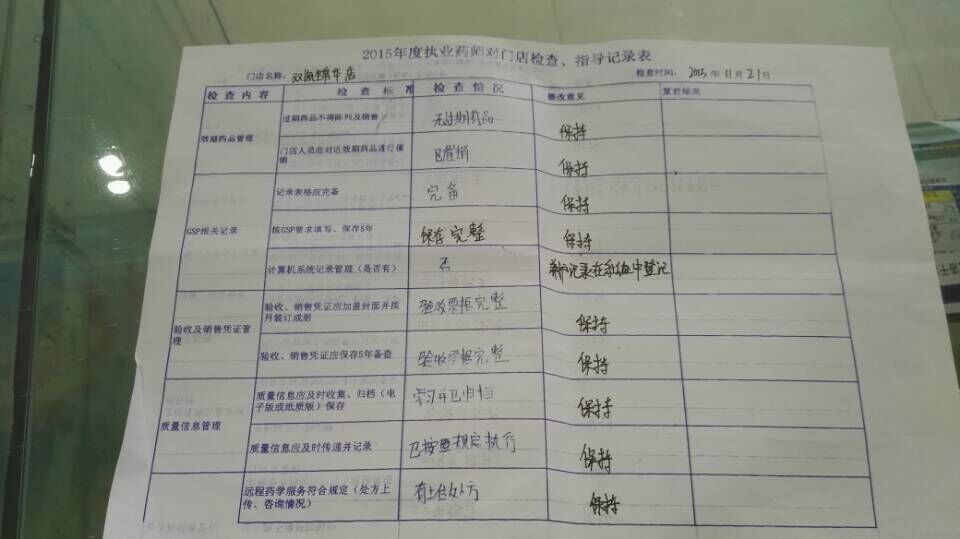 2015年度执业药师对门店检查、指导记录表
门店名称: 双流锦华店 检查时间: 2015年11月21日
检查内容 检查标准 检查情况 整改意见 复查结果
效期药品管理 过期药品不得陈列及销售 无过期药品 保持
门店人员应对近效期药品进行催销 已催销 保持
GSP相关记录 记录表格应完备 完备 保持
按GSP要求填写、保存5年 保存完整 保持
计算机系统记录管理（是否有） 否 记录在电脑中登记
验收及销售凭证管理 验收、销售凭证应加盖封面并按月装订成册 验收票据完整 保持
验收、销售凭证应保存5年备查 验收票据完整 保持
质量信息管理 质量信息应及时收集、归档（电子版或纸质版）保存 学习并已归档 保持
质量信息应及时传递并记录 已按照规定执行 保持
远程药学服务符合规定（处方上传、咨询情况） 有上传处方 保持